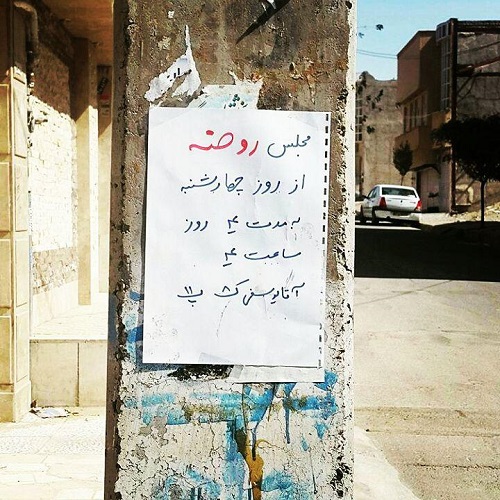 مجلس روضه
از روز چهارشنبه
به مدت ۴ روز
ساعت ۴
آقا یوسفی ک ۸ پ ۱۱